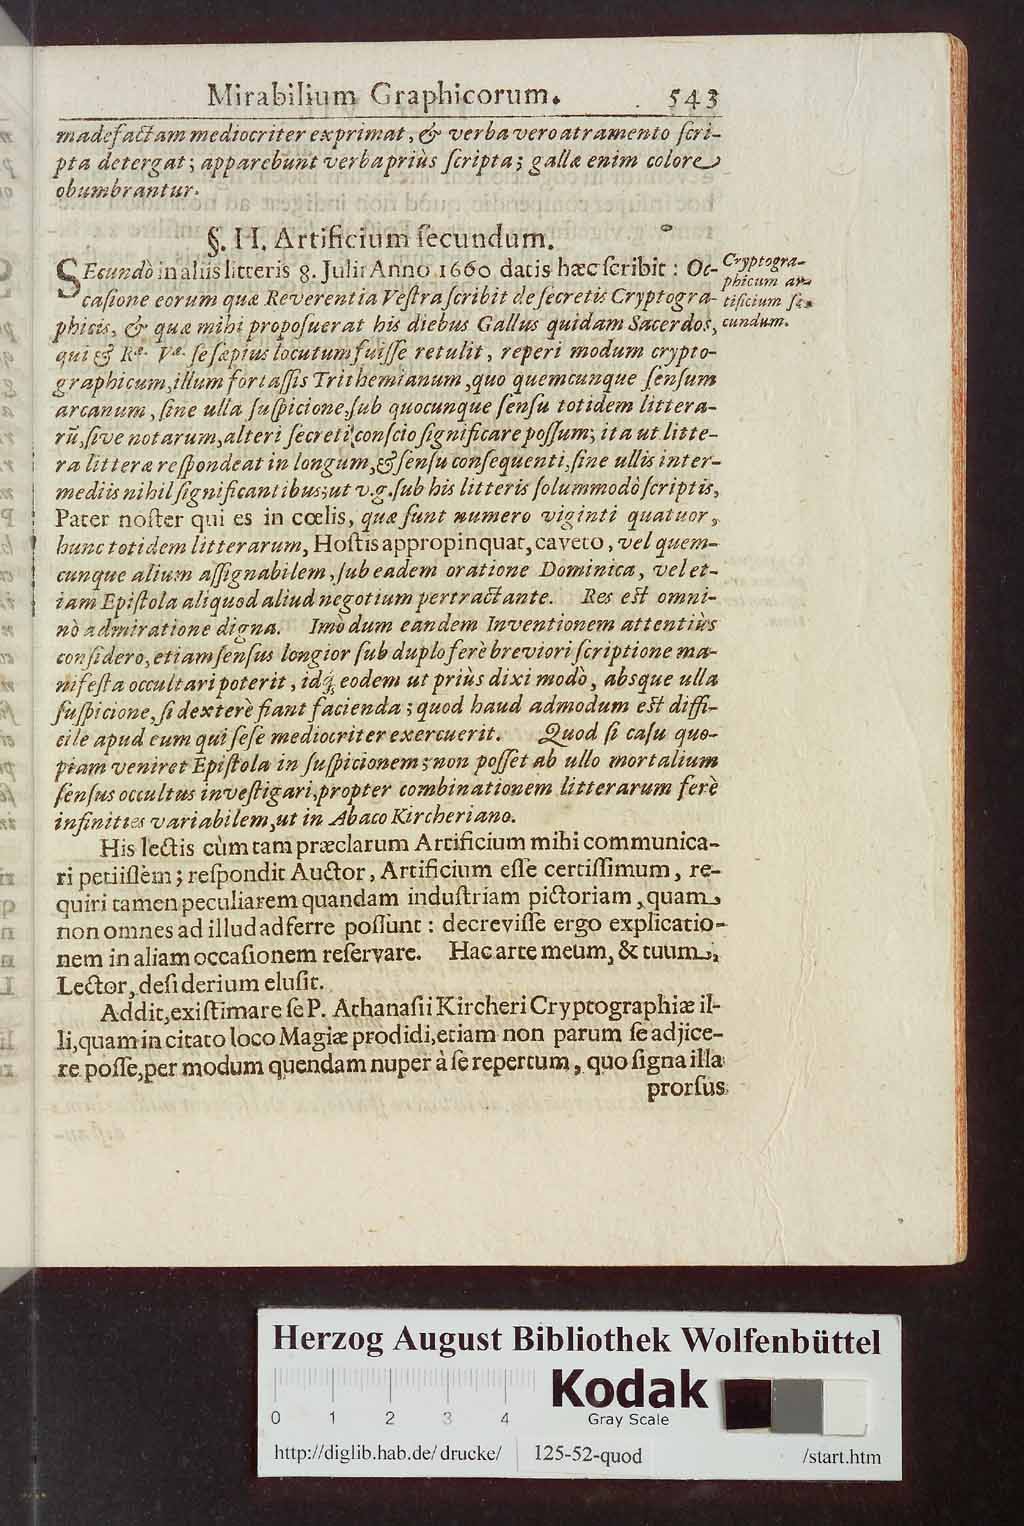 Mirabilium Graphicorum. 543
madefactam mediocriter exprimat, & verba vero atramento ſcri-
pta detergat; apparebunt verba priùs ſcripta; gallæ enim colore
obumbrantur.
§. II. Artificium ſecundum.
SEcundò in aliis litteris 8. Julii Anno 1660 datis hæc ſcribit: Oc-
caſione eorum quæ Reverentia Veſtra ſcribit de ſecretis Cryptogra-
phicis, & quæ mihi propoſuerat his diebus Gallus quidam Sacerdos,
qui & Ræ. Væ. ſe ſæpius locutum fuiſſe retulit, reperi modum crypto-
graphicum, illum fortaſſis Trithemianum, quo quemcunque ſenſum
arcanum, ſine ulla ſuſpicione, ſub quocunque ſenſu totidem littera-
rũ, ſive notarum, alteri ſecreti conſcio ſignificare poſſum; ita ut litte-
ra litteræ reſpondeat in longum, & ſenſu conſequenti, ſine ullis inter-
mediis nihil ſignificantibus; ut v.g. ſub his litteris ſolummodò ſcriptis,
Pater noſter qui es in cœlis, quæ ſunt numero viginti quatuor,
hunc totidem litterarum, Hoſtis appropinquat, caveto, vel quem-
cunque alium aſſignabilem, ſub eadem oratione Dominica, vel et-
iam Epiſtola aliquod aliud negotium pertractante. Res eſt omni-
nò admiratione digna. Imò dum eandem Inventionem attentiùs
conſidero, etiam ſenſus longior ſub duplo ferè breviori ſcriptione ma-
nifeſta occultari poterit, idq; eodem ut priùs dixi modò, absque ulla
ſuſpicione, ſi dexterè fiant facienda; quod haud admodum eſt diffi-
cile apud eum qui ſeſe mediocriter exercuerit. Quod ſi caſu quo-
piam veniret Epiſtola in ſuſpicionem; non poſſet ab ullo mortalium
ſenſus occultus inveſtigari, propter combinationem litterarum ferè
infinities variabilem, ut in Abaco Kircheriano.
His lectis cùm tam præclarum Artificium mihi communica-
ri petiiſſem; reſpondit Auctor, Artificium eſſe certiſſimum, re-
quiri tamen peculiarem quandam induſtriam pictoriam, quam
non omnes ad illud adferre poſſunt: decreviſſe ergo explicatio-
nem in aliam occaſionem reſervare. Hac arte meum, & tuum,
Lector, deſiderium eluſit.
Addit, exiſtimare ſe P. Athanaſii Kircheri Cryptographiæ il-
li, quam in citato loco Magiæ prodidi, etiam non parum ſe adjice-
re poſſe, per modum quendam nuper à ſe repertum, quo ſigna illa
prorſus
Cryptogra-
phicum ar-
tificium ſe-
cundum.
Herzog August Bibliothek Wolfenbüttel
Kodak
Gray Scale
0 1 2 3 4
http://diglib.hab.de/drucke/ 125-52-quod /start.htm